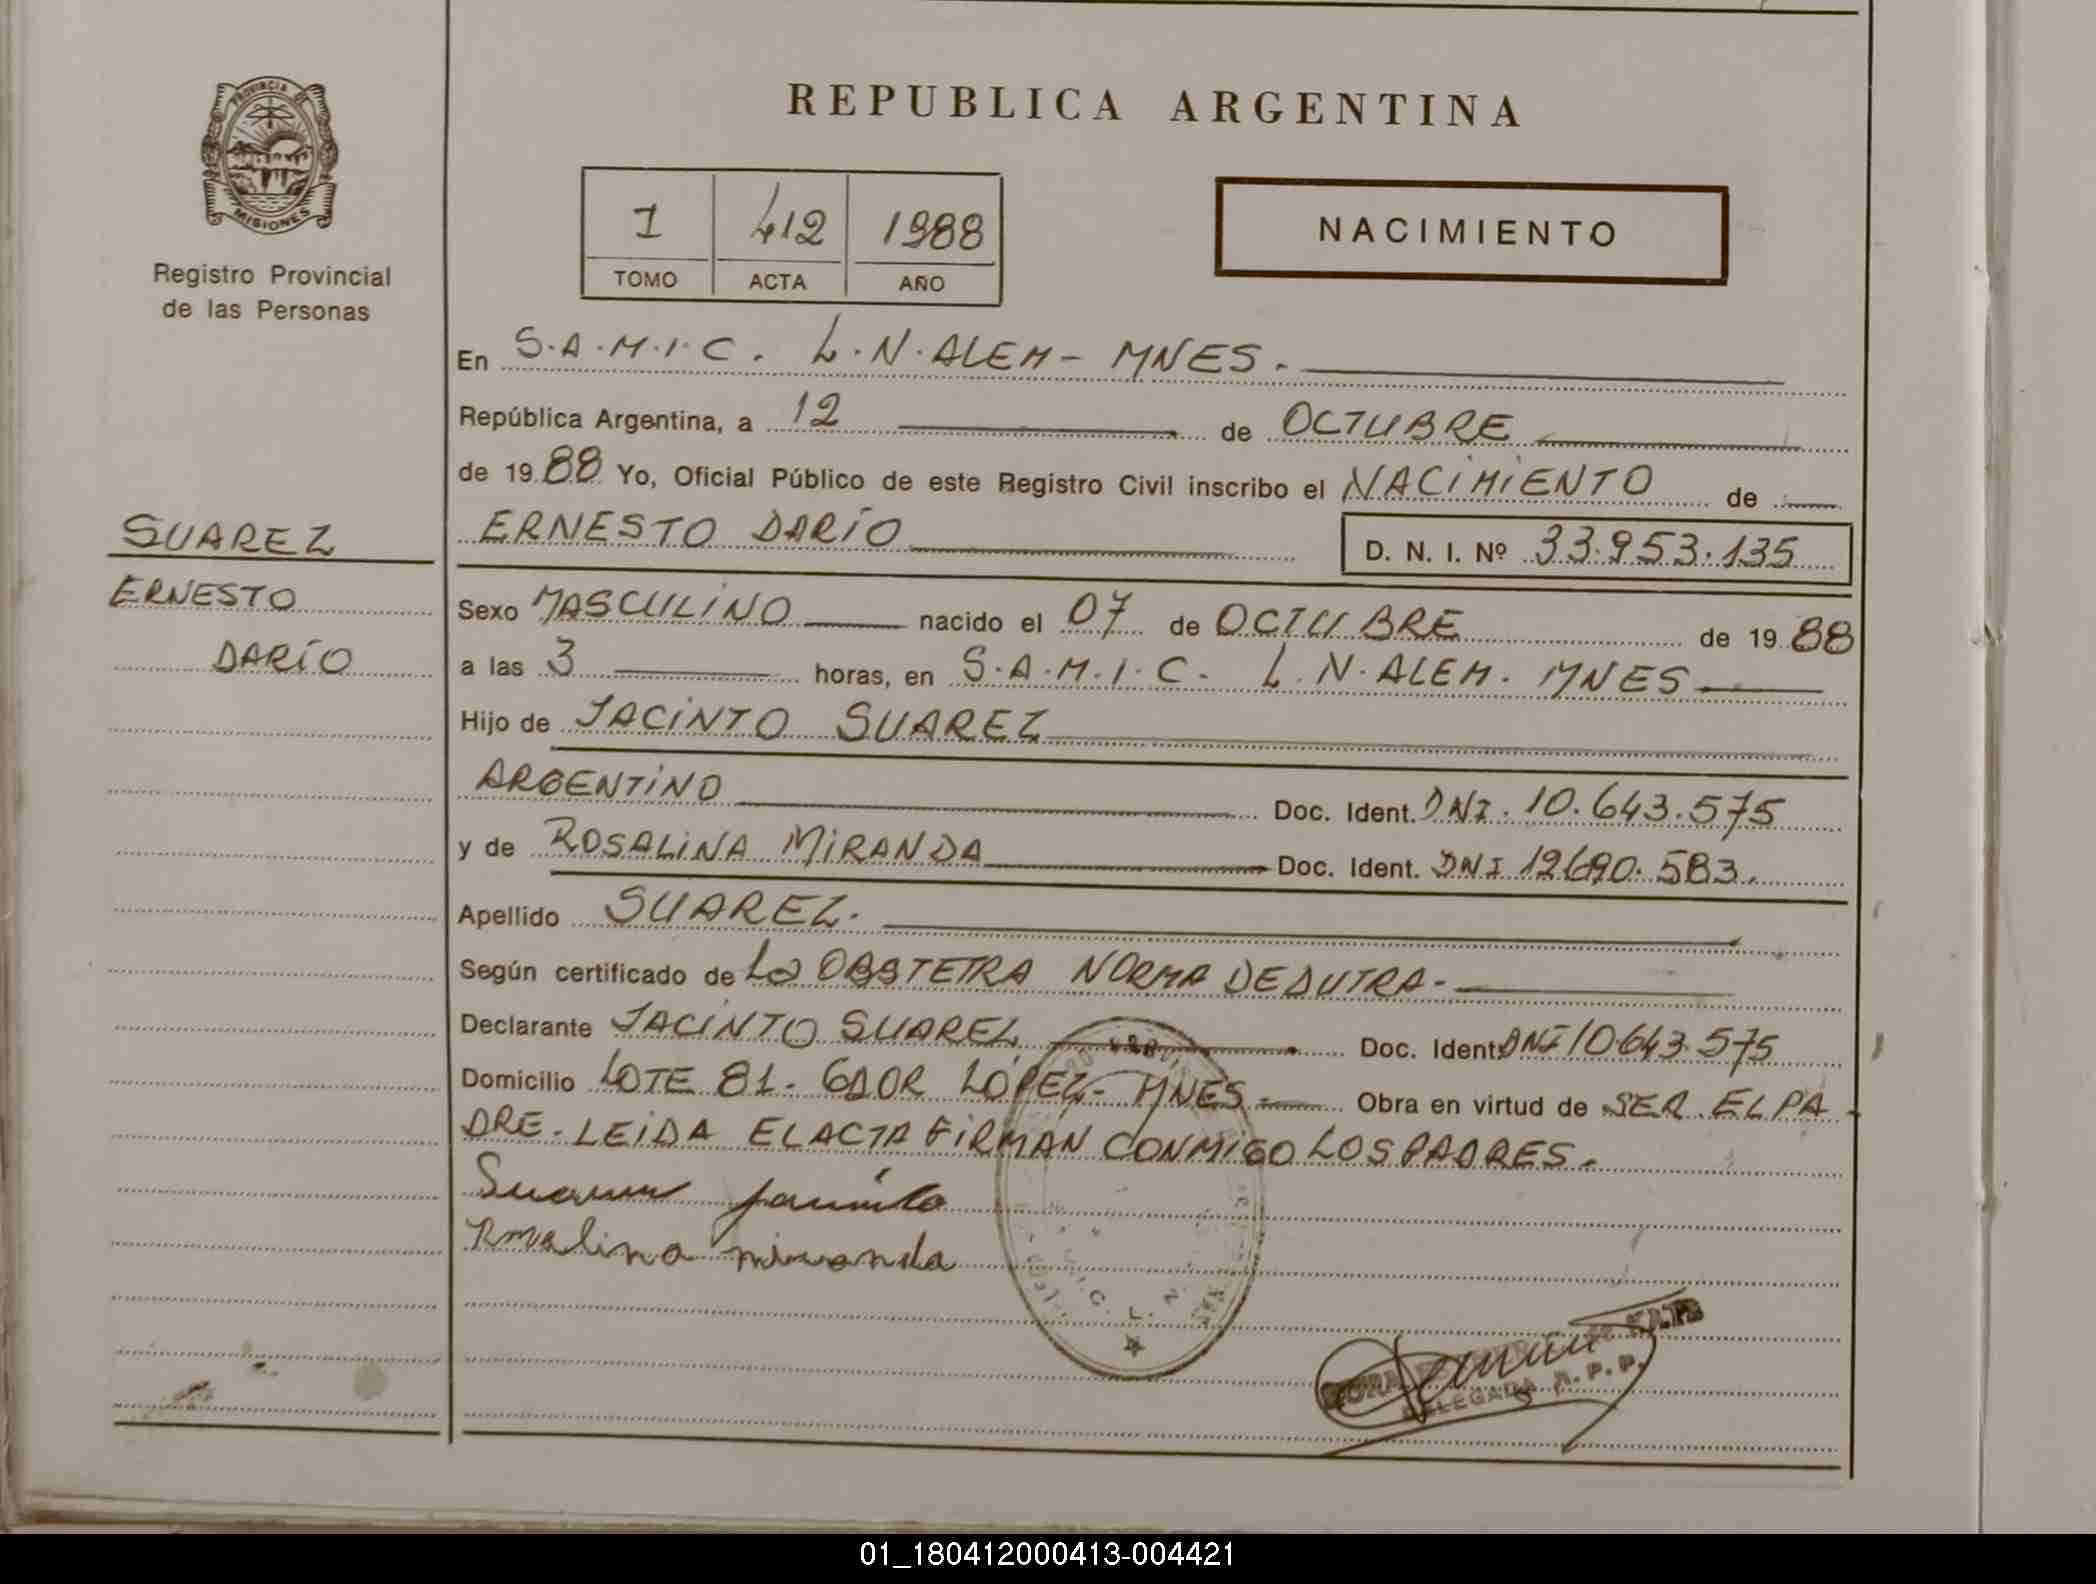 PROVINCIA DE
MISIONES
Registro Provincial
de las Personas
REPUBLICA ARGENTINA
1 412 1988
TOMO ACTA AÑO
NACIMIENTO
En S.A.M.I.C. L.N.ALEM- MNES.
República Argentina, a 12 de OCTUBRE
de 19 88 Yo, Oficial Público de este Registro Civil inscribo el NACIMIENTO de
ERNESTO DARÍO D. N. I. Nº 33.953.135
SUAREZ
ERNESTO
DARÍO
Sexo MASCULINO nacido el 07 de OCTUBRE de 19 88
a las 3 horas, en S.A.M.I.C. L.N.ALEM. MNES
Hijo de JACINTO SUAREZ
ARGENTINO Doc. Ident. DNI. 10.643.575
y de ROSALINA MIRANDA Doc. Ident. DNI 12690.583.
Apellido SUAREZ.
Según certificado de La OBSTETRA NORMA DEDUTRA-
Declarante JACINTO SUAREZ Doc. Ident. DNI 10.643.575
Domicilio LOTE 81- GDOR LÓPEZ- MNES- Obra en virtud de SER EL PA-
DRE. LEIDA EL ACTA FIRMAN CONMIGO LOS PADRES.
Suarez Jacinto
Rosalina miranda
C. L. N.
DELEGADA R.P.P.
01_180412000413-004421